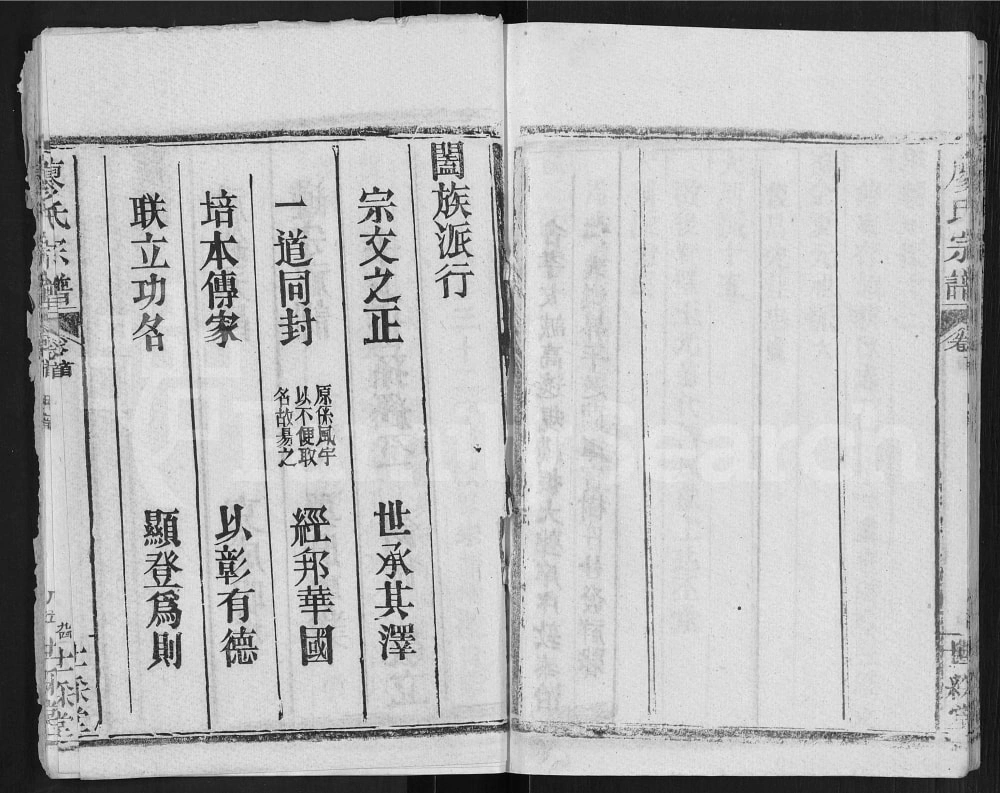 闔族派行
宗文之正　世承其澤
一道同封　原係風字以不便取名故易之　經邦華國
培本傳家　以彰有德
联立功名　顯登爲則
廖氏宗譜
卷首
廖氏宗譜
卷